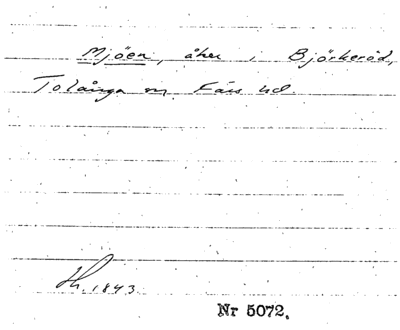 Mjöen, åker i Björkeröd,
Tolånga sn Färs hd
Sk. 1843
Nr 5072.